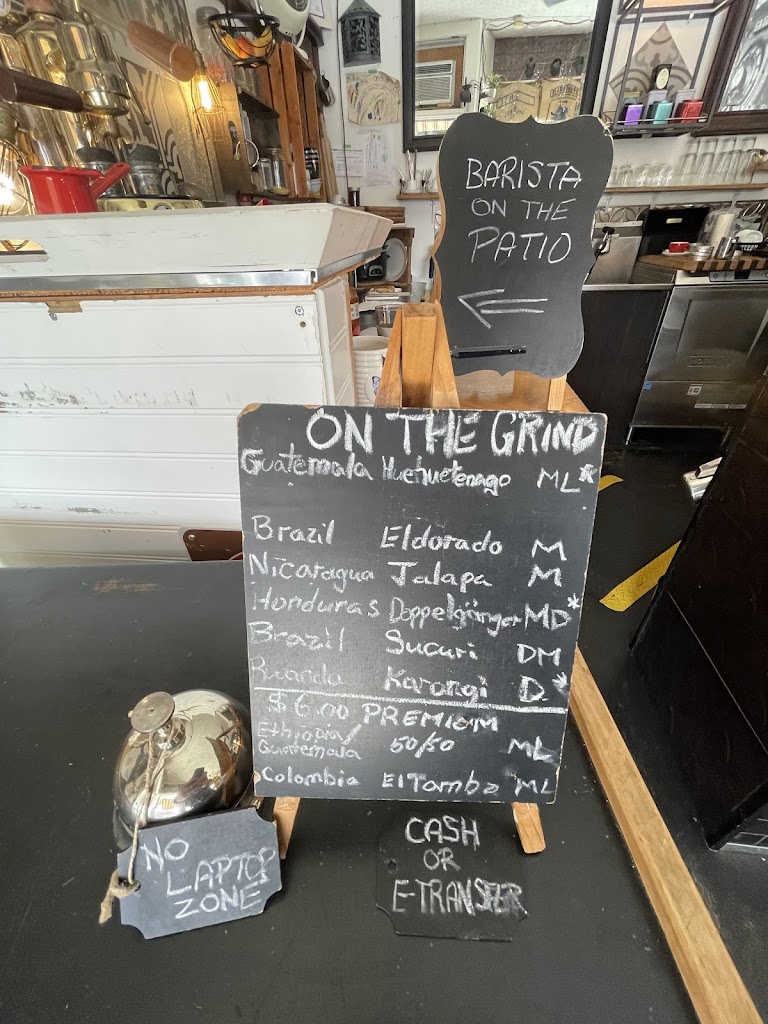 BARISTA
ON THE
PATIO
ON THE GRIND
Guatemala Huehuetenago ML*
Brazil Eldorado M
Nicaragua Jalapa M
Honduras Doppelgänger MD*
Brazil Sucuri DM
Rwanda Karongi D*
$6.00 PREMIUM
Ethiopia/
Guatemala 50/50 ML
Colombia El Tambo ML
NO
LAPTOP
ZONE
CASH
OR
E-TRANSFER